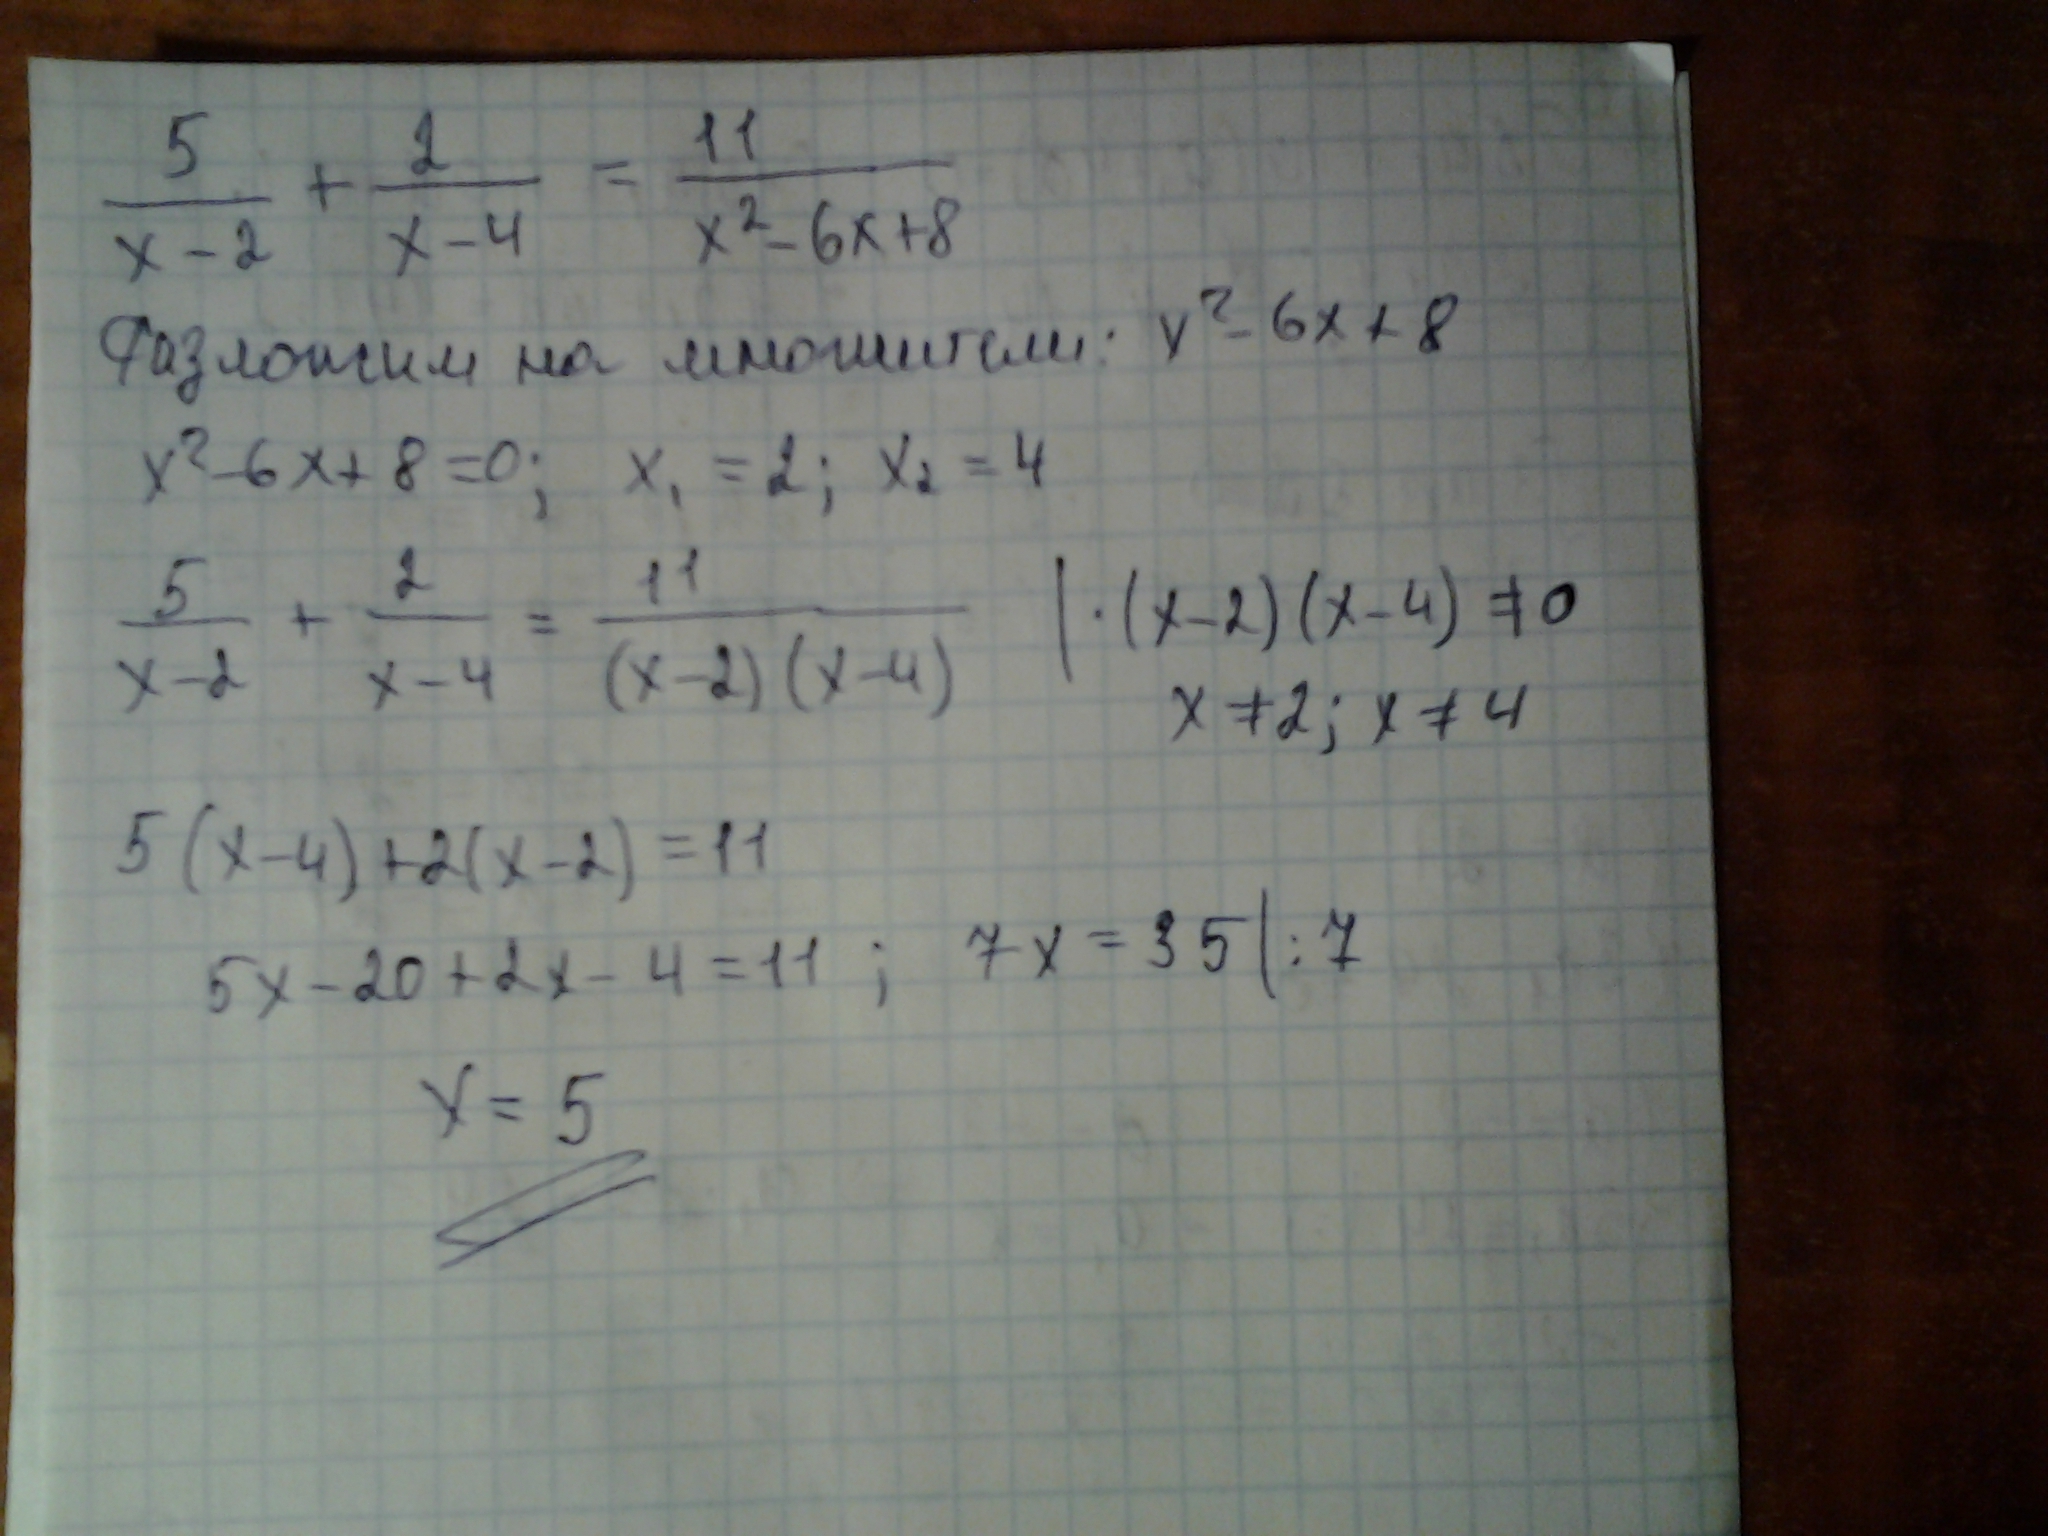 5/(x-2) + 2/(x-4) = 11/(x²-6x+8)
Разложим на множители: x²-6x+8
x²-6x+8=0; x₁=2; x₂=4
5/(x-2) + 2/(x-4) = 11/((x-2)(x-4)) |·(x-2)(x-4)≠0
x≠2; x≠4
5(x-4)+2(x-2)=11
5x-20+2x-4=11; 7x=35|:7
x=5